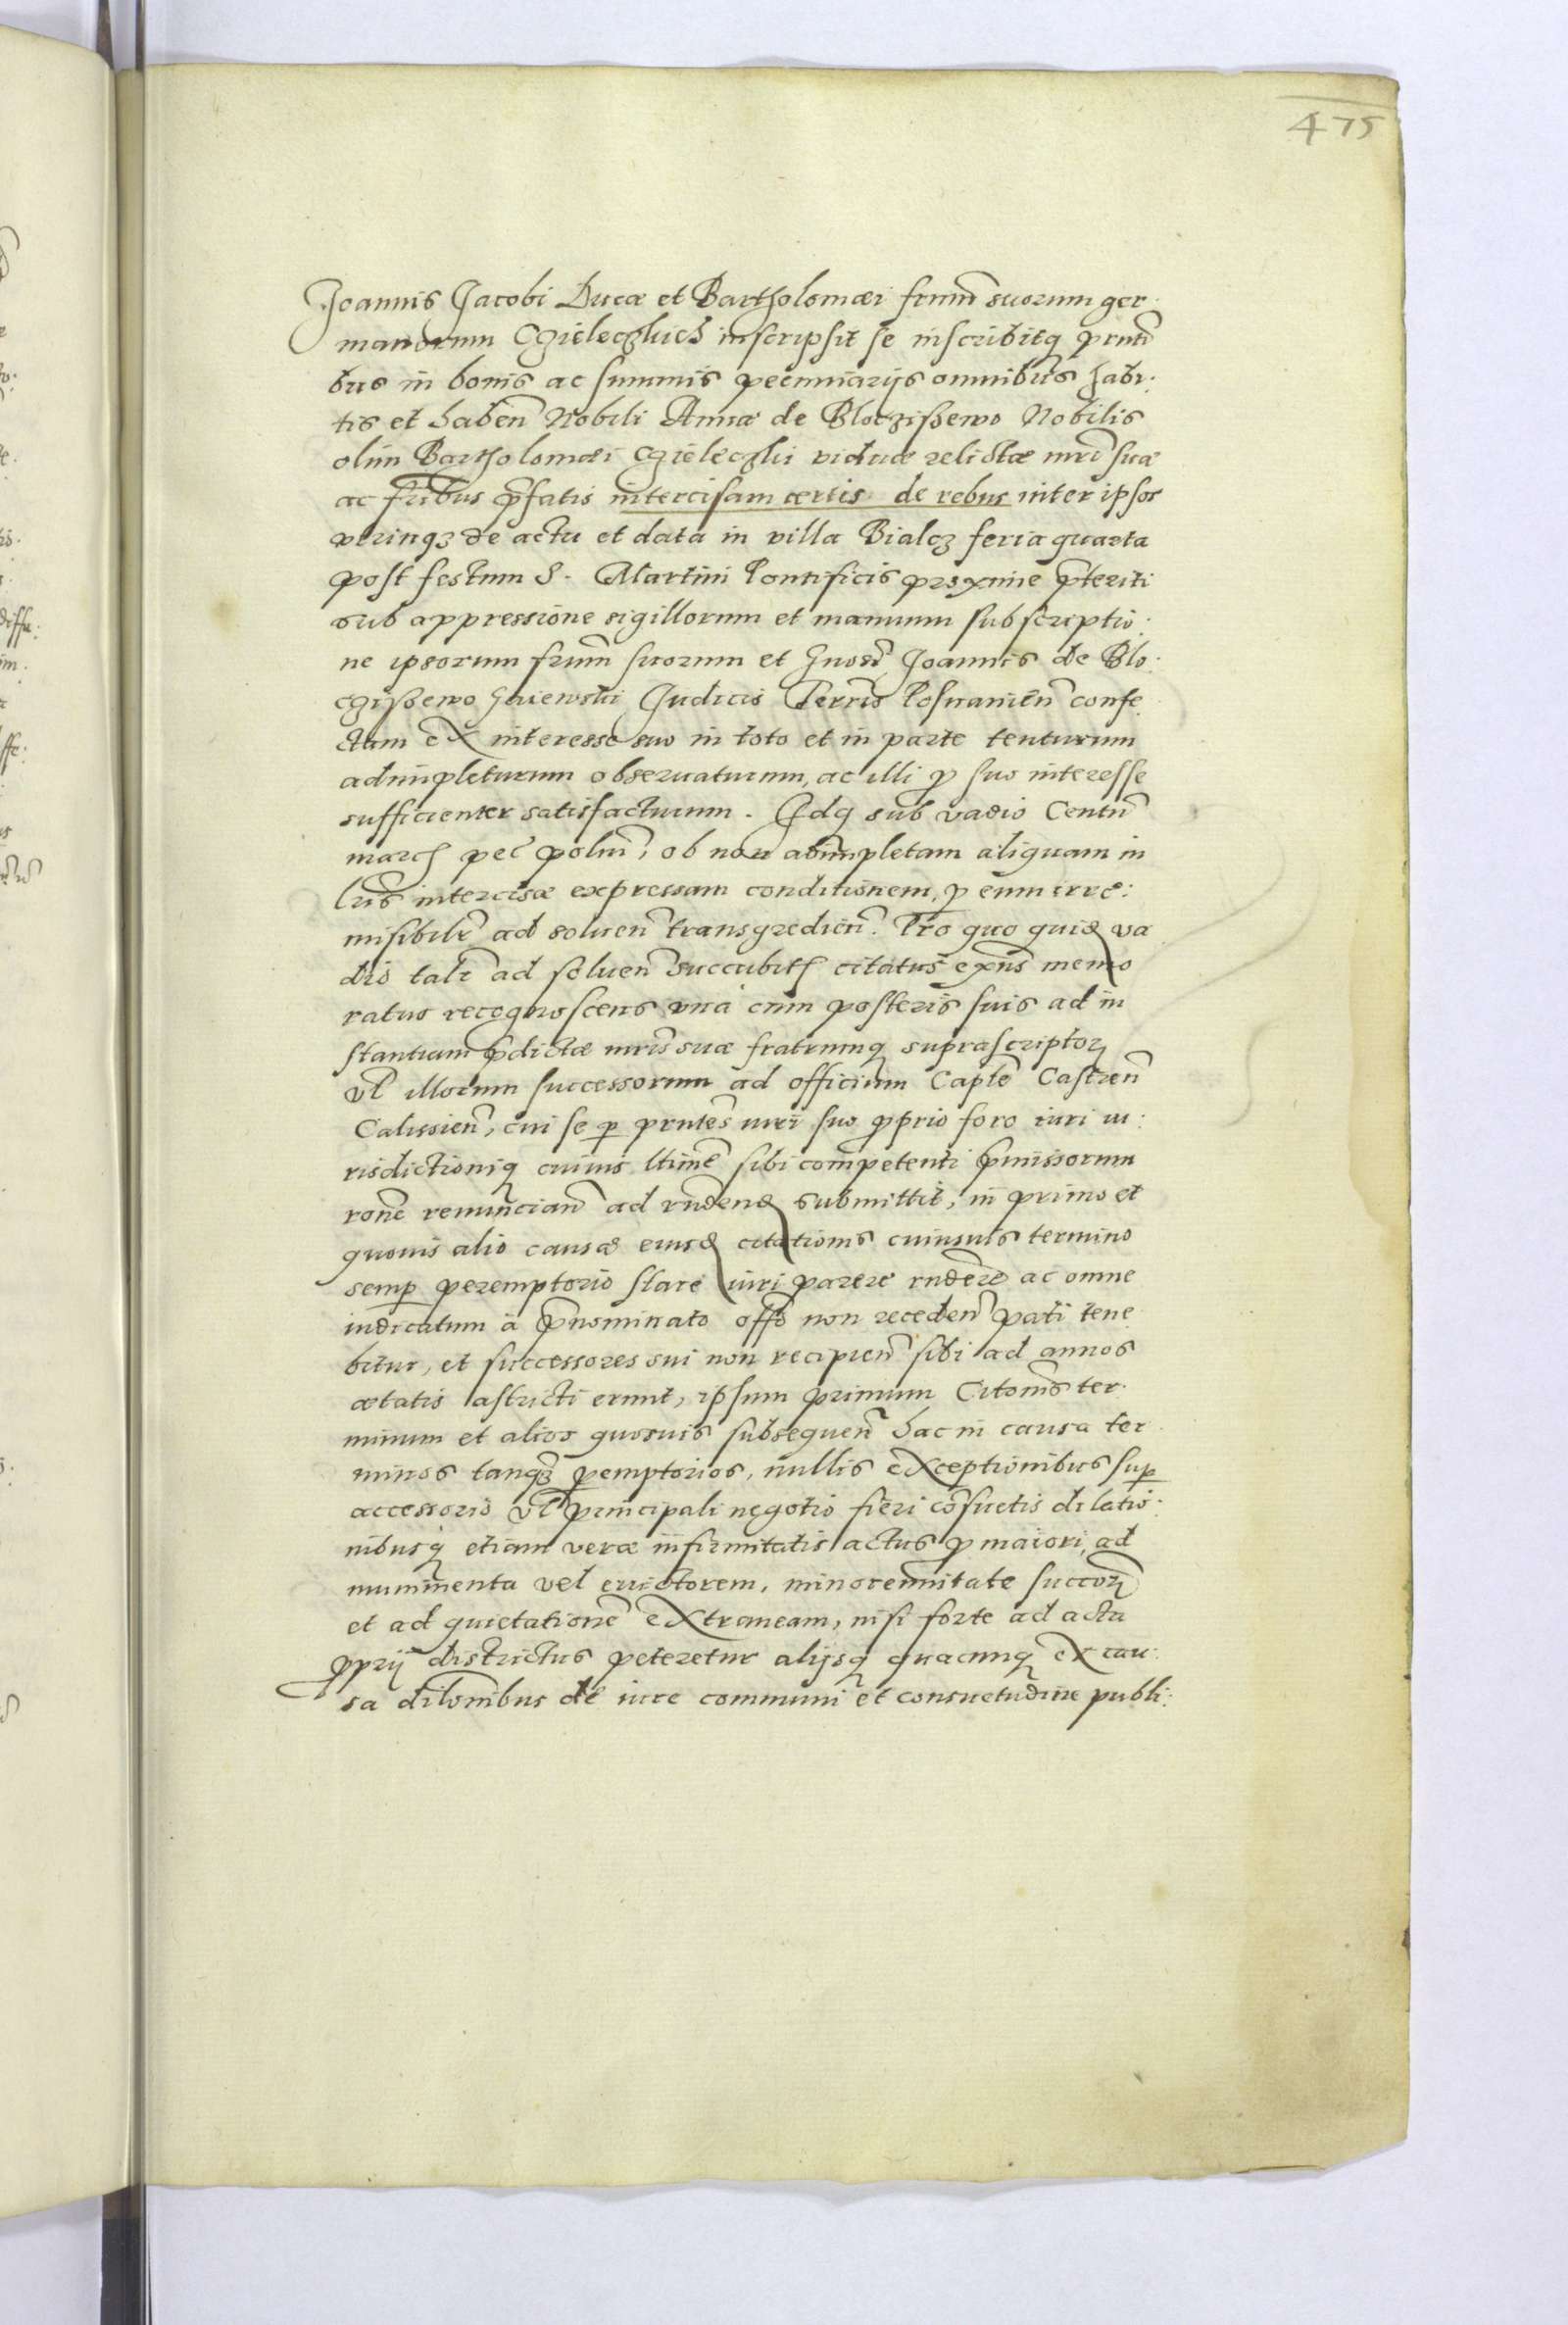 475
Joannis Jacobi Lucæ et Bartholomæi frum̃ suorum ger
manorum Czieleczkich inscripsit se inscribitq prnti
bus in bonis ac summis pecuniarijs omnibus habi:
tis et haben̄ Nobili Annæ de Bloczissewo Nobilis
olim Bartholomæi Czieleczki viduæ relictæ mr̄i suæ
ac fr̄ibus p̄fatis intercisam certis de rebus inter ipsos
vtrinqz de actu et data in villa Bialcz feria quarta
post festum S. Martini Pontificis proxime p̄teriti
sub appressione sigillorum et manuum subscriptio:
ne ipsorum frum̃ suorum et Gnosi Joannis de Blo:
czissewo Gaiewski Judicis Terrīs Posnanien̄ confe
ctam ex interesse suo in toto et in parte tenturum
adimpleturum obseruaturum, ac illi p suo interesse
sufficienter satisfacturum. Idq sub vadio Centū
march pec̄ polm̄, ob non adimpletam aliquam in
lr̄is intercisæ expressam conditionem, p eum irre:
misibilr̄ ad soluen̄ transgredien̄. Pro quo quid va
dio tali ad soluen̄ succubit citatus exn̄s memo
ratus recognoscens vna cum posteris suis ad in
stantiam p̄dictæ mr̄is suæ fratrumq suprascriptor
vl̄ illorum successorum ad officium Captē Castren̄
Calissien̄, cui se p prntes iuri suo proprio foro iuri iu:
risdictioniq cuiuis ltimē sibi competenti p̄missorum
ronē renuncian̄ ad rn̄dend submittit, in primo et
quouis alio causæ eiusd citationis cuiusuis termino
semp peremptorio stare iuri parere rn̄dere ac omne
iudicatum à p̄nominato offō non receden̄ pati tene
bitur, et successores sui non recipien̄ sibi ad annos
ætatis astricti erunt, ipsum primum Citonis ter
minum et alios quosuis subsequen̄ hac in causa ter
minos tanqz pemptorios, nullis exceptionibus sup
accessorio vl̄ principali negotio fieri consuetis dilatio:
nibusq etiam veræ infirmitatis actus p maiori, ad
munimenta vel euictorem, minorennitate succor
et ad quietationē extraneam, nisi forte ad acta
pprij districtus peteretur alijsq quacunq ex cau:
sa dilonibus de iure communi et consuetudine publi: